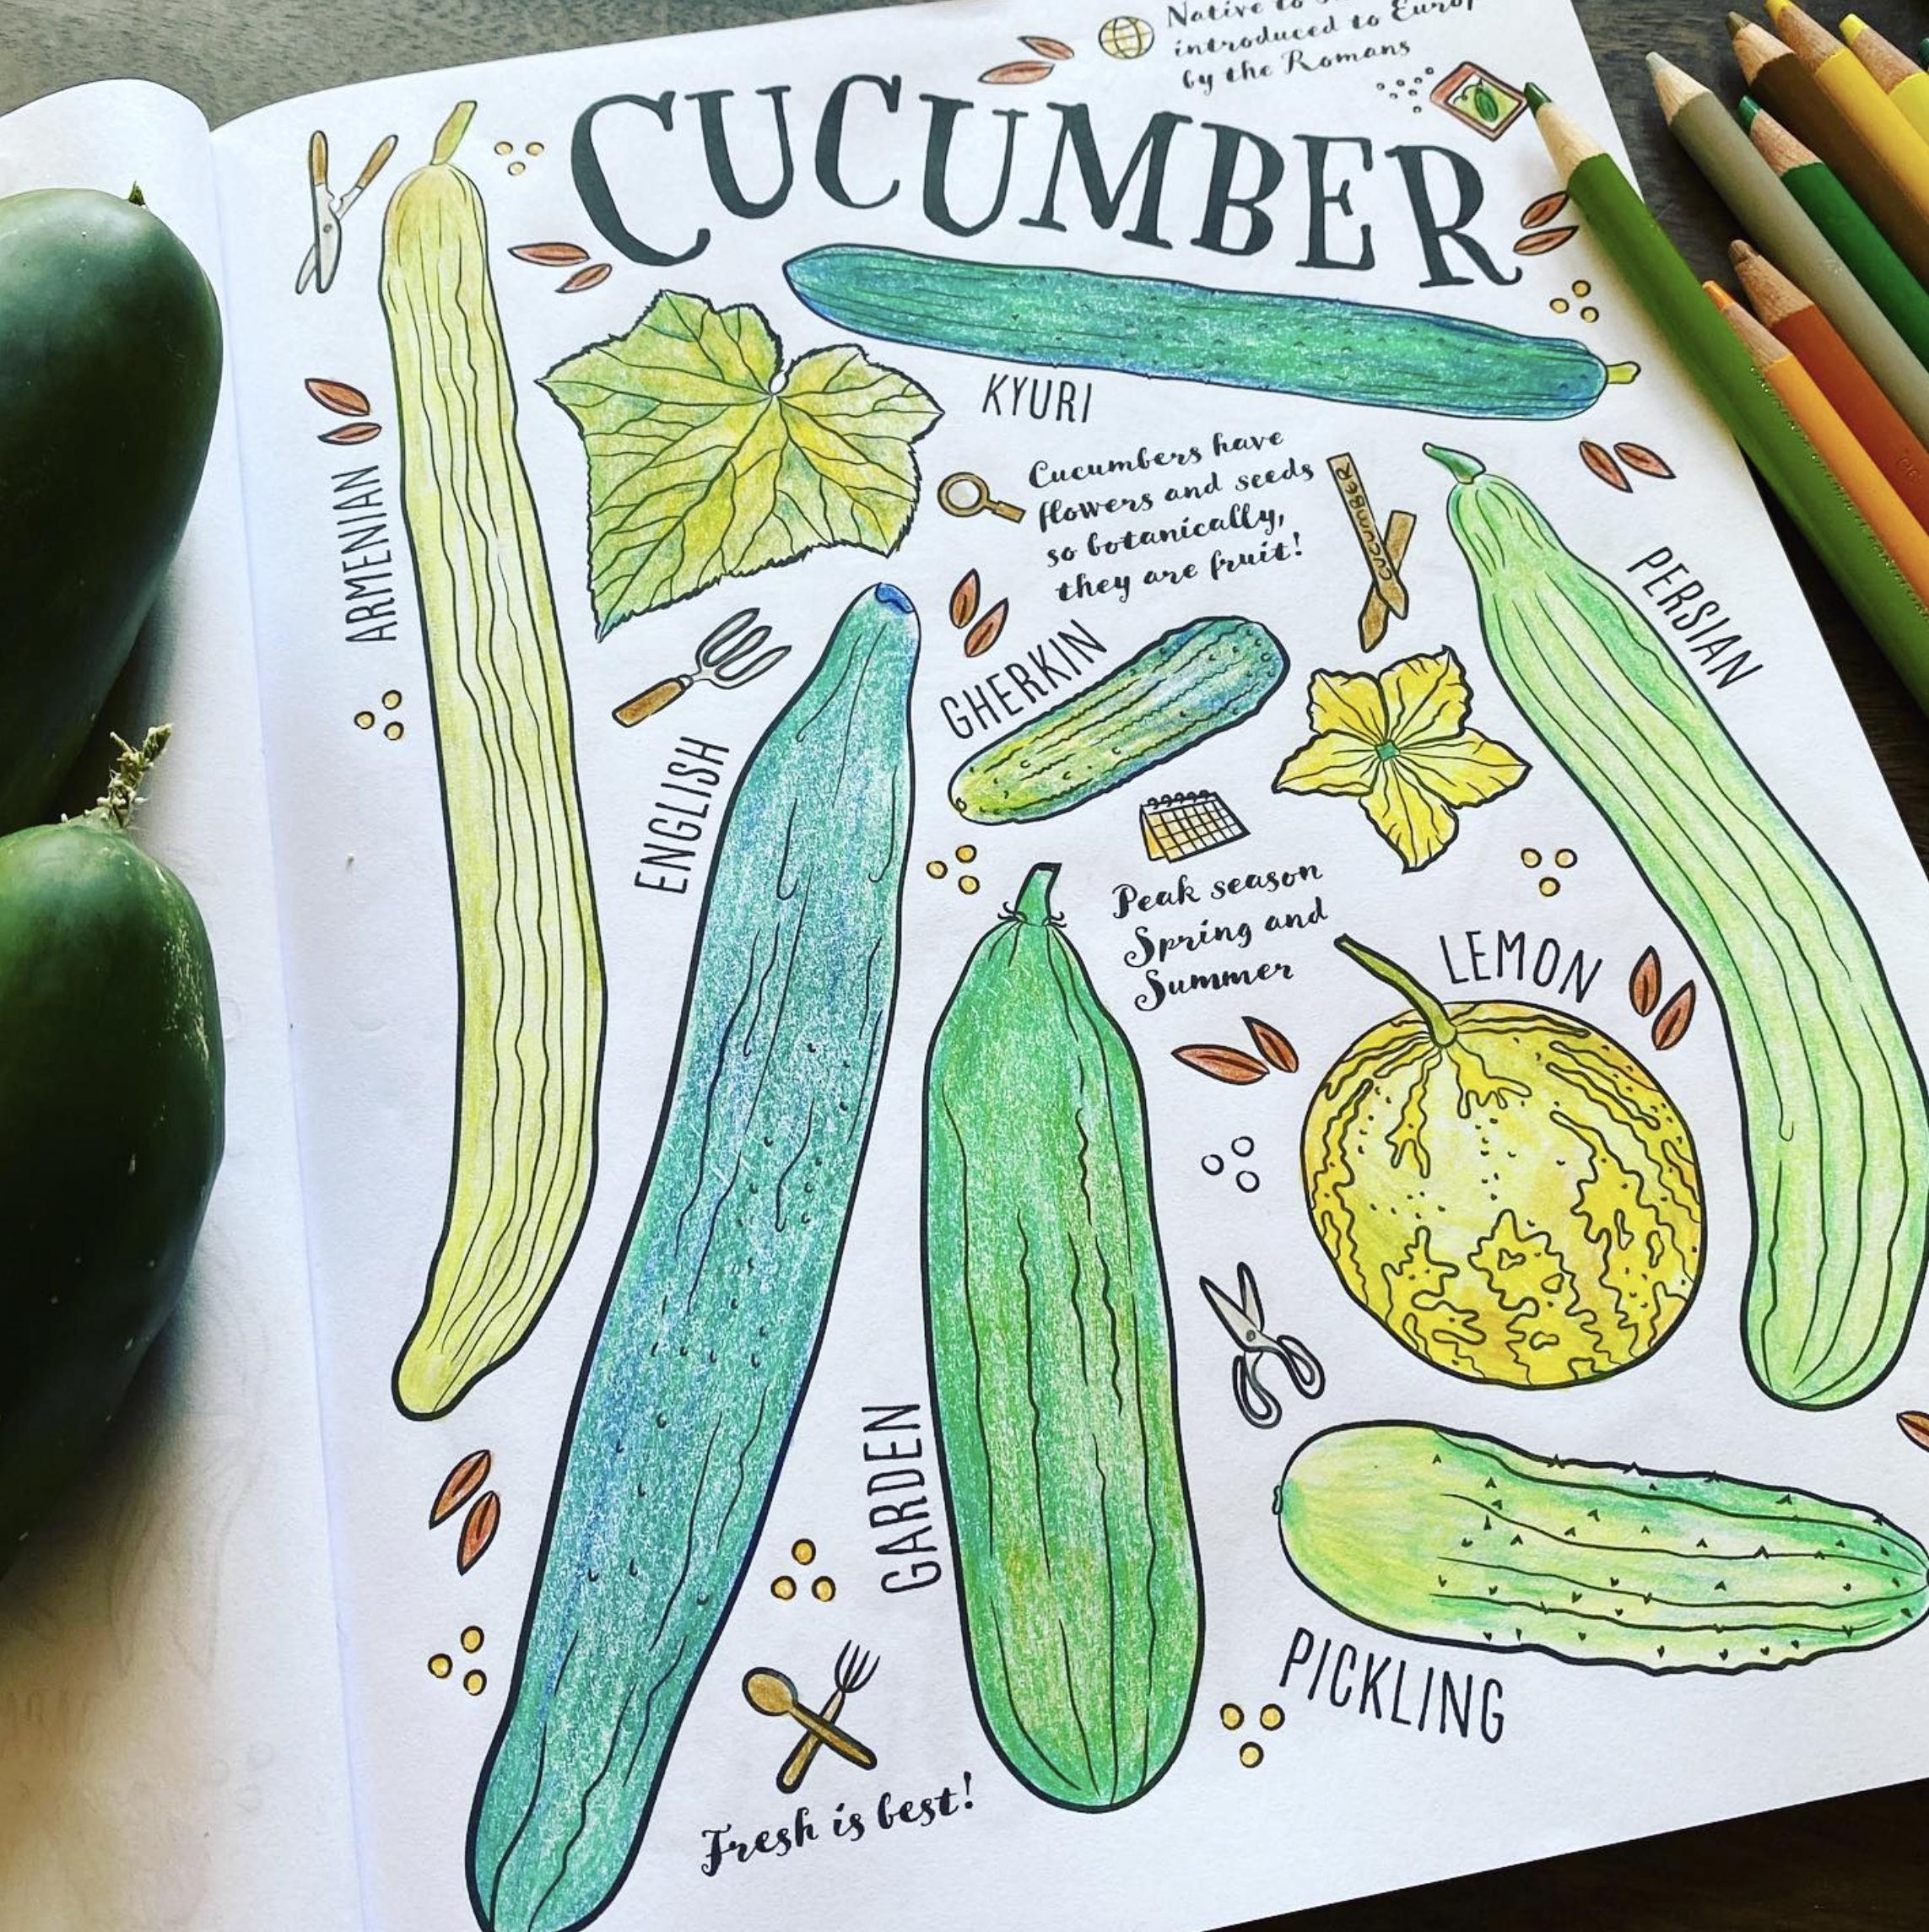 Native to
introduced to
by the Romans
CUCUMBER
KYURI
ARMENIAN
Cucumbers have
flowers and seeds
so botanically,
they are fruit!
CUCUMBER
CUCUMBER
PERSIAN
GHERKIN
ENGLISH
Peak season
Spring and
Summer
LEMON
GARDEN
PICKLING
Fresh is best!